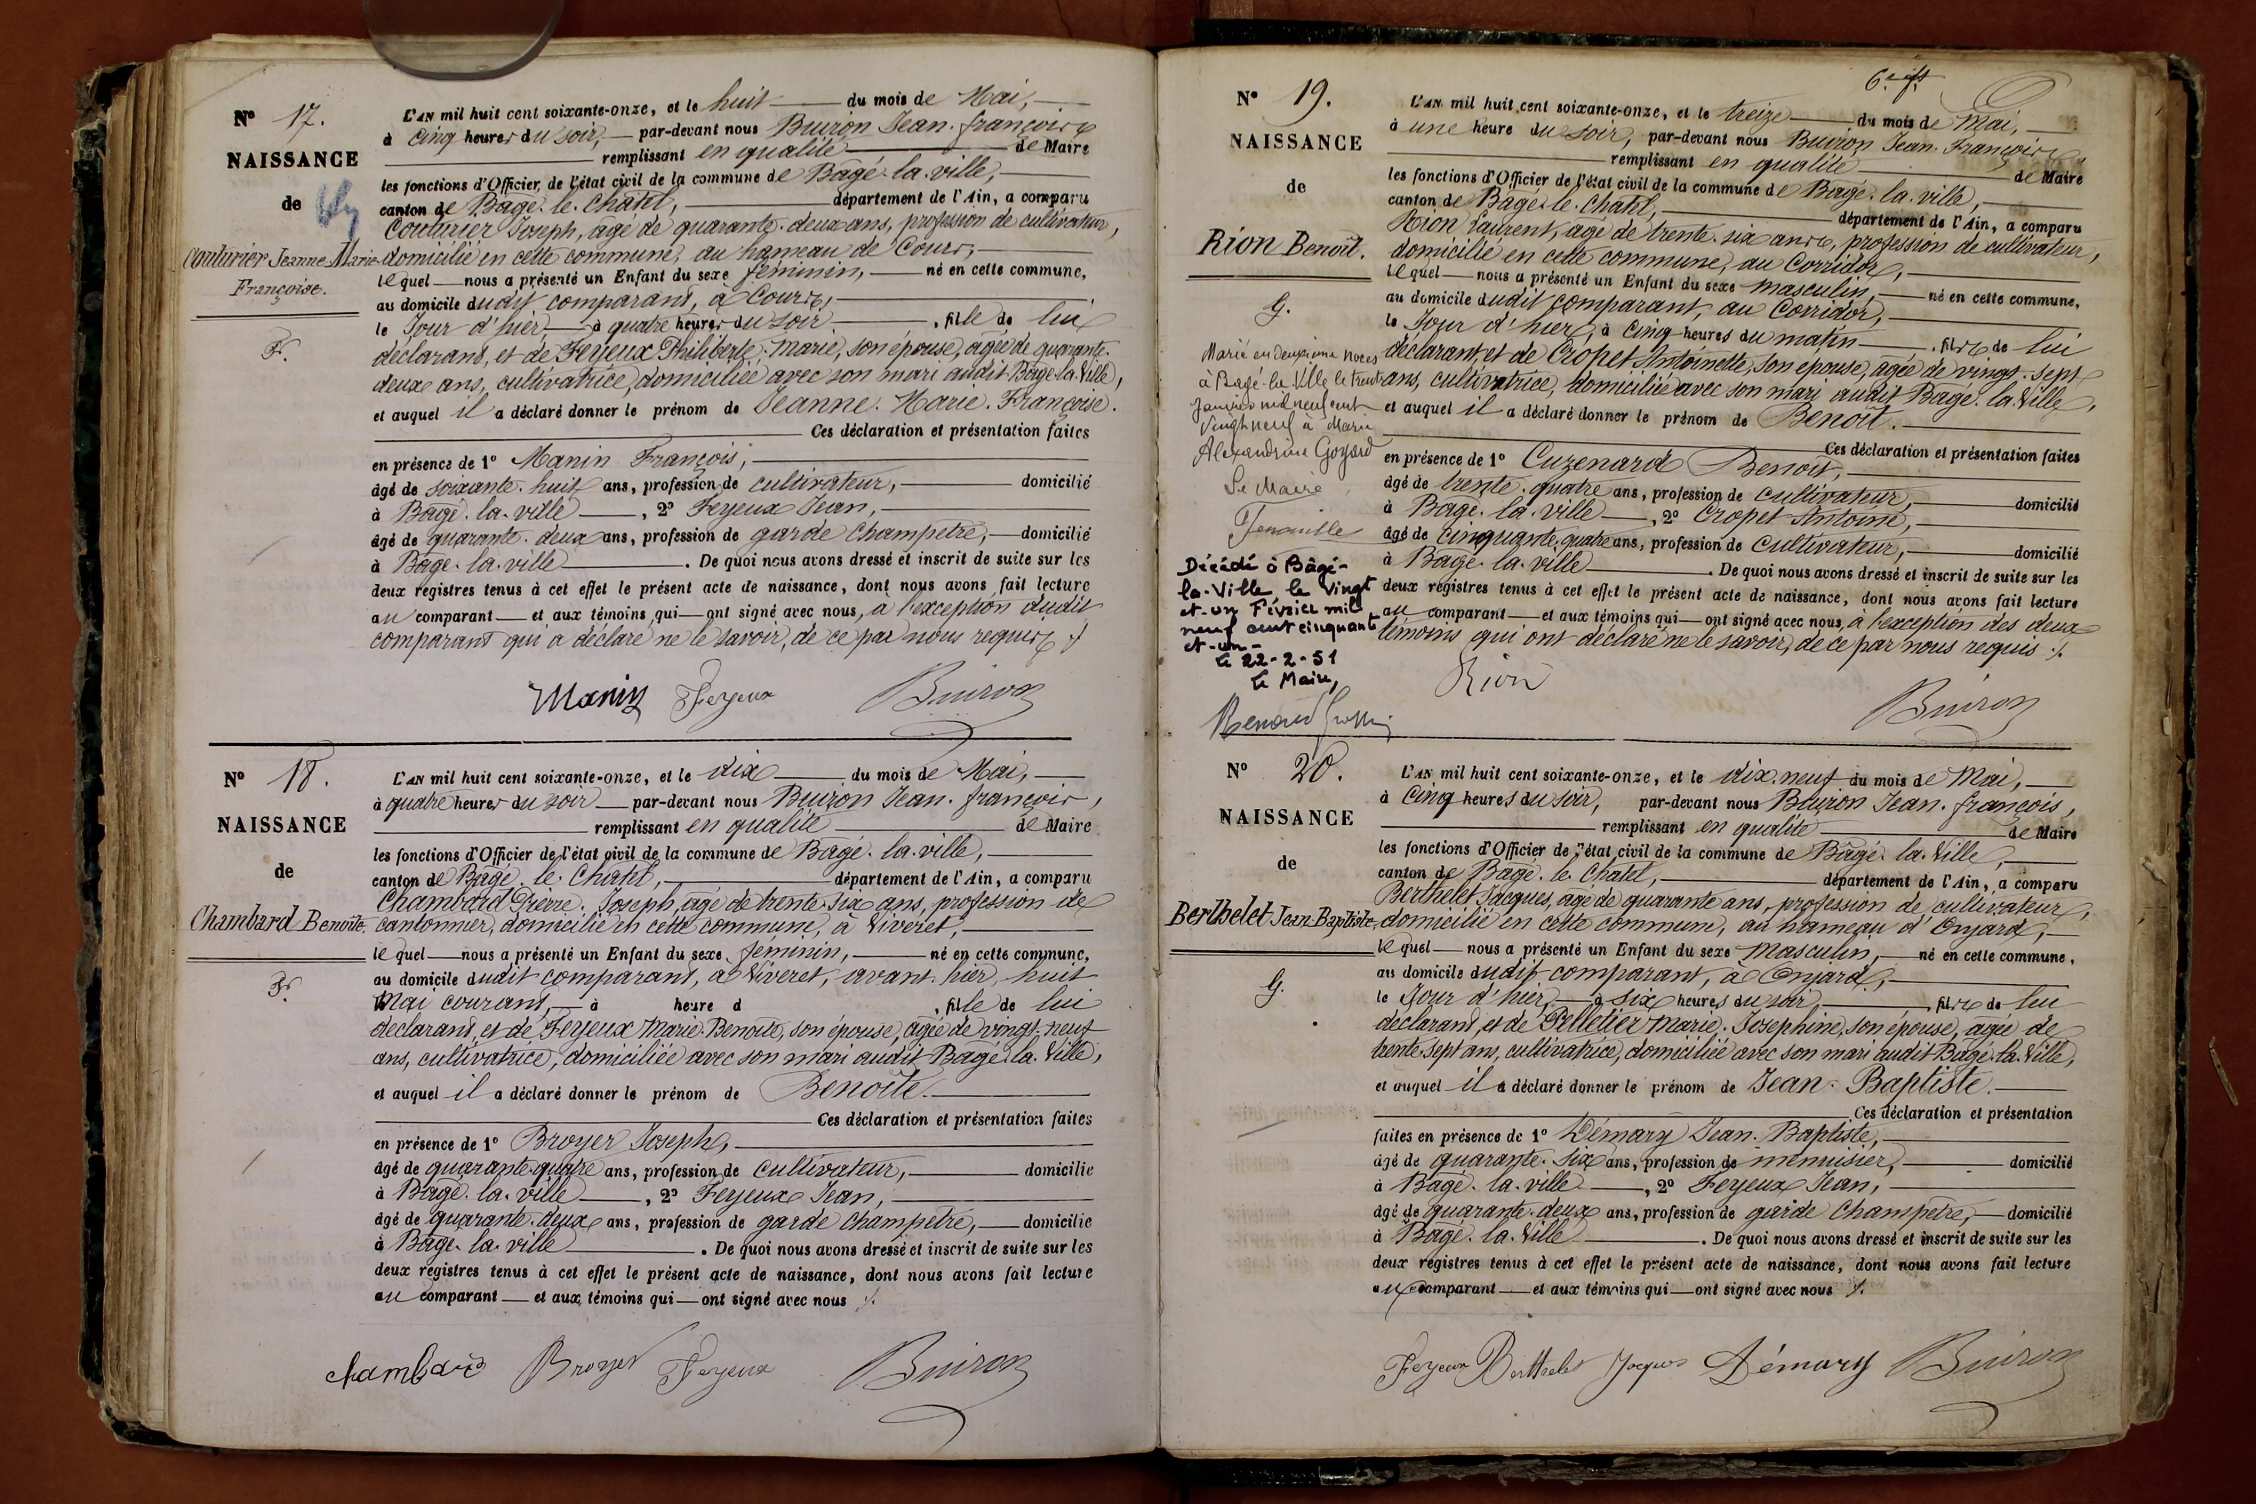 N° 17.
NAISSANCE
de
Couturier Jeanne Marie
Françoise.
F.
L'AN mil huit cent soixante-onze, et le huit du mois de Mai,
à cinq heures du soir, par-devant nous Buiron Jean-françois
remplissant en qualité de Maire
les fonctions d'Officier de l'état civil de la commune de Bâgé-la-ville,
canton de Bâgé-le-Châtel, département de l'Ain, a comparu
Couturier Joseph, âgé de quarante-deux ans, profession de cultivateur,
domicilié en cette commune, au hameau de Cours,
lequel nous a présenté un Enfant du sexe féminin, né en cette commune,
au domicile dudit comparant, à Cours,
le Jour d'hier à quatre heures du soir, fille de lui
déclarant, et de Feyeux Philiberte-Marie, son épouse, âgée de quarante-
deux ans, cultivatrice, domiciliée avec son mari audit Bâgé-la-Ville,
et auquel il a déclaré donner le prénom de Jeanne-Marie-Françoise.
Ces déclaration et présentation faites
en présence de 1° Manin François,
âgé de soixante-huit ans, profession de cultivateur, domicilié
à Bâgé-la-ville, 2° Feyeux Jean,
âgé de quarante-deux ans, profession de garde champêtre, domicilié
à Bâgé-la-ville. De quoi nous avons dressé et inscrit de suite sur les
deux registres tenus à cet effet le présent acte de naissance, dont nous avons fait lecture
au comparant et aux témoins qui ont signé avec nous, à l'exception dudit
comparant qui a déclaré ne le savoir, de ce par nous requis ./.
Manin Feyeux Buiron
N° 18.
NAISSANCE
de
Chambard Benoîte.
F.
L'AN mil huit cent soixante-onze, et le dix du mois de Mai,
à quatre heures du soir par-devant nous Buiron Jean-françois,
remplissant en qualité de Maire
les fonctions d'Officier de l'état civil de la commune de Bâgé-la-ville,
canton de Bâgé-le-Châtel, département de l'Ain, a comparu
Chambard Pierre-Joseph, âgé de trente-six ans, profession de
cantonnier, domicilié en cette commune, à Viveret,
lequel nous a présenté un Enfant du sexe féminin, né en cette commune,
au domicile dudit comparant, à Viveret, avant-hier, huit
Mai courant, à heure d , fille de lui
déclarant, et de Feyeux Marie-Benoîte, son épouse, âgée de vingt-neuf
ans, cultivatrice, domiciliée avec son mari audit Bâgé-la-Ville,
et auquel il a déclaré donner le prénom de Benoîte.
Ces déclaration et présentation faites
en présence de 1° Broyer Joseph,
âgé de quarante-quatre ans, profession de cultivateur, domicilié
à Bâgé-la-ville, 2° Feyeux Jean,
âgé de quarante-deux ans, profession de garde champêtre, domicilié
à Bâgé-la-ville. De quoi nous avons dressé et inscrit de suite sur les
deux registres tenus à cet effet le présent acte de naissance, dont nous avons fait lecture
au comparant et aux témoins qui ont signé avec nous ./.
Chambard Broyer Feyeux Buiron
N° 19.
NAISSANCE
de
Rion Benoît.
G.
Marié en deuxième noces
à Bâgé-la-Ville le trente
Janvier mil neuf cent
vingt neuf à Marie
Alexandrine Goyard
Le Maire
Décédé à Bâgé-
la-Ville le vingt
et-un Février mil
neuf cent cinquante
et-un-
le 22-2-51
Le Maire,
L'AN mil huit cent soixante-onze, et le treize du mois de Mai,
à une heure du soir, par-devant nous Buiron Jean-François
remplissant en qualité de Maire
les fonctions d'Officier de l'état civil de la commune de Bâgé-la-ville,
canton de Bâgé-le-Châtel, département de l'Ain, a comparu
Rion Laurent, âgé de trente-six ans, profession de cultivateur,
domicilié en cette commune, au Corridor,
lequel nous a présenté un Enfant du sexe masculin, né en cette commune,
au domicile dudit comparant, au Corridor,
le Jour d'hier, à cinq heures du matin, fils de lui
déclarant et de Cropet Antoinette, son épouse, âgée de vingt-sept
ans, cultivatrice, domiciliée avec son mari audit Bâgé-la-Ville,
et auquel il a déclaré donner le prénom de Benoît.
Ces déclaration et présentation faites
en présence de 1° Cuzenard Benoit,
âgé de trente-quatre ans, profession de cultivateur, domicilié
à Bâgé-la-ville, 2° Cropet Antoine,
âgé de cinquante-quatre ans, profession de cultivateur, domicilié
à Bâgé-la-ville. De quoi nous avons dressé et inscrit de suite sur les
deux registres tenus à cet effet le présent acte de naissance, dont nous avons fait lecture
au comparant et aux témoins qui ont signé avec nous, à l'exception des deux
témoins qui ont déclaré ne le savoir, de ce par nous requis ./.
Rion Buiron
N° 20.
NAISSANCE
de
Berthelet Jean-Baptiste.
G.
L'AN mil huit cent soixante-onze, et le dix-neuf du mois de Mai,
à cinq heures du soir, par-devant nous Buiron Jean-françois,
remplissant en qualité de Maire
les fonctions d'Officier de l'état civil de la commune de Bâgé-la-Ville,
canton de Bâgé-le-Châtel, département de l'Ain, a comparu
Berthelet Jacques, âgé de quarante ans, profession de cultivateur,
domicilié en cette commune, au hameau d'Onjard,
lequel nous a présenté un Enfant du sexe masculin, né en cette commune,
au domicile dudit comparant, à Onjard,
le Jour d'hier, à six heures du soir, fils de lui
déclarant, et de Pelletier Marie-Josephine, son épouse, âgée de
trente-sept ans, cultivatrice, domiciliée avec son mari audit Bâgé-la-Ville,
et auquel il a déclaré donner le prénom de Jean-Baptiste.
Ces déclaration et présentation
faites en présence de 1° Démary Jean-Baptiste,
âgé de quarante-six ans, profession de menuisier, domicilié
à Bâgé-la-ville, 2° Feyeux Jean,
âgé de quarante-deux ans, profession de garde champêtre, domicilié
à Bâgé-la-Ville. De quoi nous avons dressé et inscrit de suite sur les
deux registres tenus à cet effet le présent acte de naissance, dont nous avons fait lecture
au comparant et aux témoins qui ont signé avec nous ./.
Feyeux Berthelet Jacques Démary Buiron